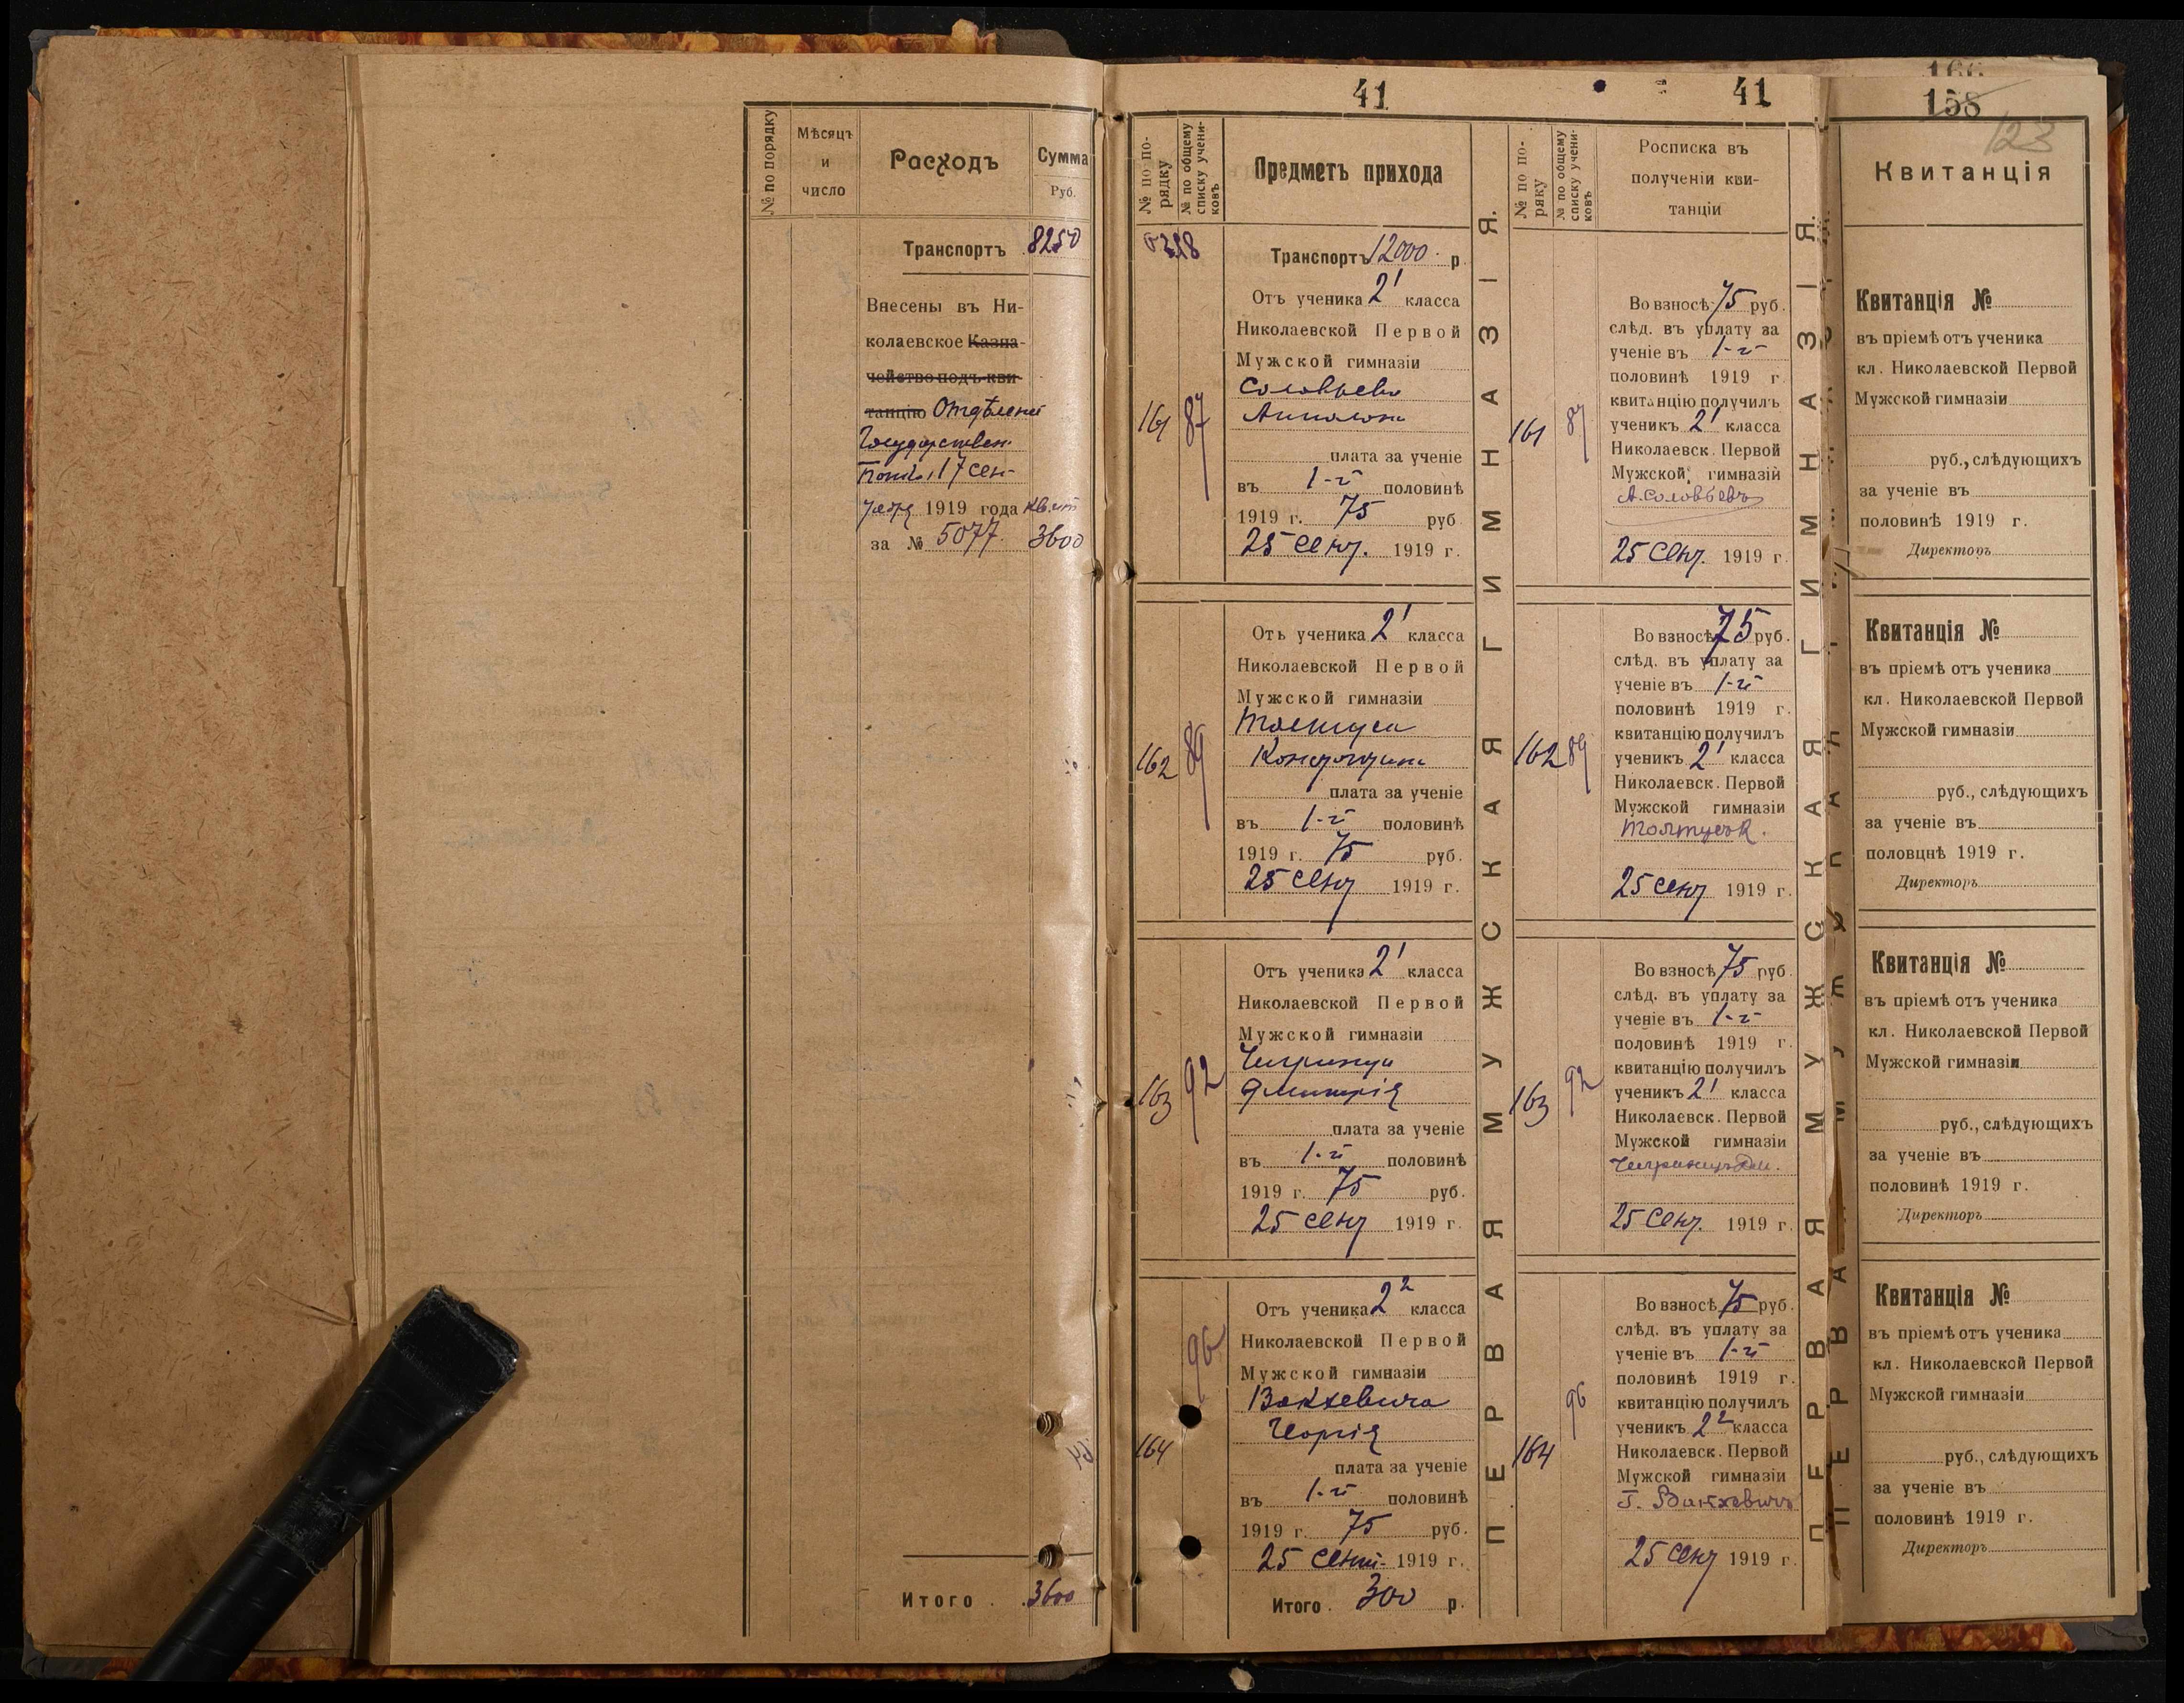 № по порядку
Мѣсяцъ
и
число
Расходъ
Сумма
Руб.
Транспортъ 8250
Внесены въ Ни-
колаевское Казна-
чейство подъ кви-
танцію Отдѣленіе
Государствен.
17 сен-
1919 года
за № 5077. 3600
Итого . 3600
41
№ по по-
рядку
№ по общему
списку учени-
ковъ
Предметъ прихода
Транспортъ 12000 р.
161
87
Отъ ученика 2¹ класса
Николаевской Первой
Мужской гимназіи
Соловьева
плата за ученіе
въ 1-й половинѣ
1919 г. 75 руб
25 Сент. 1919 г.
162
89
Отъ ученика 2¹ класса
Николаевской Первой
Мужской гимназіи
плата за ученіе
въ 1-й половинѣ
1919 г. 75 руб.
25 Сент 1919 г.
163
92
Отъ ученика 2¹ класса
Николаевской Первой
Мужской гимназіи
Дмитрія
плата за ученіе
въ 1-й половинѣ
1919 г. 75 руб.
25 Сент 1919 г.
164
96
Отъ ученика 2² класса
Николаевской Первой
Мужской гимназіи
Вакхевича
Георгія
плата за ученіе
въ 1-й половинѣ
1919 г. 75 руб.
25 Сент- 1919 г.
Итого . 300 р.
ПЕРВАЯ МУЖСКАЯ ГИМНАЗІЯ.
41
№ по по-
ряку
№ по общему
списку учени-
ковъ
Росписка въ
полученіи кви-
танціи
161
87
Во взносѣ 75 руб.
слѣд. въ уплату за
ученіе въ 1-й
половинѣ 1919 г.
квитанцію получилъ
ученикъ 2¹ класса
Николаевск. Первой
Мужской гимназій
А. Соловьевъ
25 Сент. 1919 г.
162
89
Во взносѣ 75 руб.
слѣд. въ уплату за
ученіе въ 1-й
половинѣ 1919 г.
квитанцію получилъ
ученикъ 2¹ класса
Николаевск. Первой
Мужской гимназіи
25 Сент 1919 г.
163
92
Во взносѣ 75 руб.
слѣд. въ уплату за
ученіе въ 1-й
половинѣ 1919 г.
квитанцію получилъ
ученикъ 2¹ класса
Николаевск. Первой
Мужской гимназіи
25 Сент. 1919 г.
164
96
Во взносѣ 75 руб.
слѣд. въ уплату за
ученіе въ 1-й
половинѣ 1919 г.
квитанцію получилъ
ученикъ 2² класса
Николаевск. Первой
Мужской гимназіи
Г. Вакхевичъ
25 Сент 1919 г.
ПЕРВАЯ МУЖСКАЯ ГИМНАЗІЯ.
166
158
123
Квитанція
Квитанція №
въ пріемѣ отъ ученика
кл. Николаевской Первой
Мужской гимназіи
руб., слѣдующихъ
за ученіе въ
половинѣ 1919 г.
Директоръ
Квитанція №
въ пріемѣ отъ ученика
кл. Николаевской Первой
Мужской гимназіи
руб., слѣдующихъ
за ученіе въ
половцнѣ 1919 г.
Директоръ
Квитанція №
въ пріемѣ отъ ученика
кл. Николаевской Первой
Мужской гимназіи
руб., слѣдующихъ
за ученіе въ
половинѣ 1919 г.
Директоръ
Квитанція №
въ пріемѣ отъ ученика
кл. Николаевской Первой
Мужской гимназіи
руб., слѣдующихъ
за ученіе въ
половинѣ 1919 г.
Директоръ